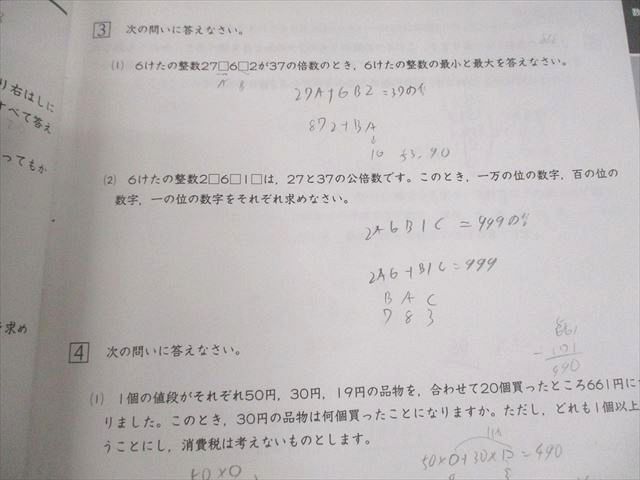 3 次の問いに答えなさい。
(1) 6けたの整数27□6□2が37の倍数のとき，6けたの整数の最小と最大を答えなさい。
A B
27A+6B2=37の
872+BA
↓
16 53,90
(2) 6けたの整数2□6□1□は，27と37の公倍数です。このとき，一万の位の数字，百の位の
数字，一の位の数字をそれぞれ求めなさい。
2A6B1C = 999の
2A6+B1C=999
B A C
7 8 3
り右はしに
すべて答え
ってもか
求め
4 次の問いに答えなさい。
661
- 171
490
(1) 1個の値段がそれぞれ50円，30円，19円の品物を，合わせて20個買ったところ661円に
りました。このとき，30円の品物は何個買ったことになりますか。ただし，どれも1個以上
うことにし，消費税は考えないものとします。
11
50×0+30×□=490
50×0
数